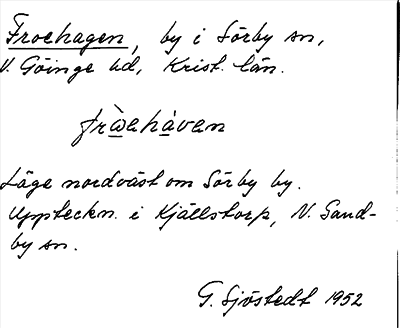 Froehagen, by i Sörby sn,
V. Göinge hd, Krist. län.
frὼehàven
Läge nordväst om Sörby by.
Uppteckn. i Kjällstorp, N. Sand-
by sn.
G. Sjöstedt 1952